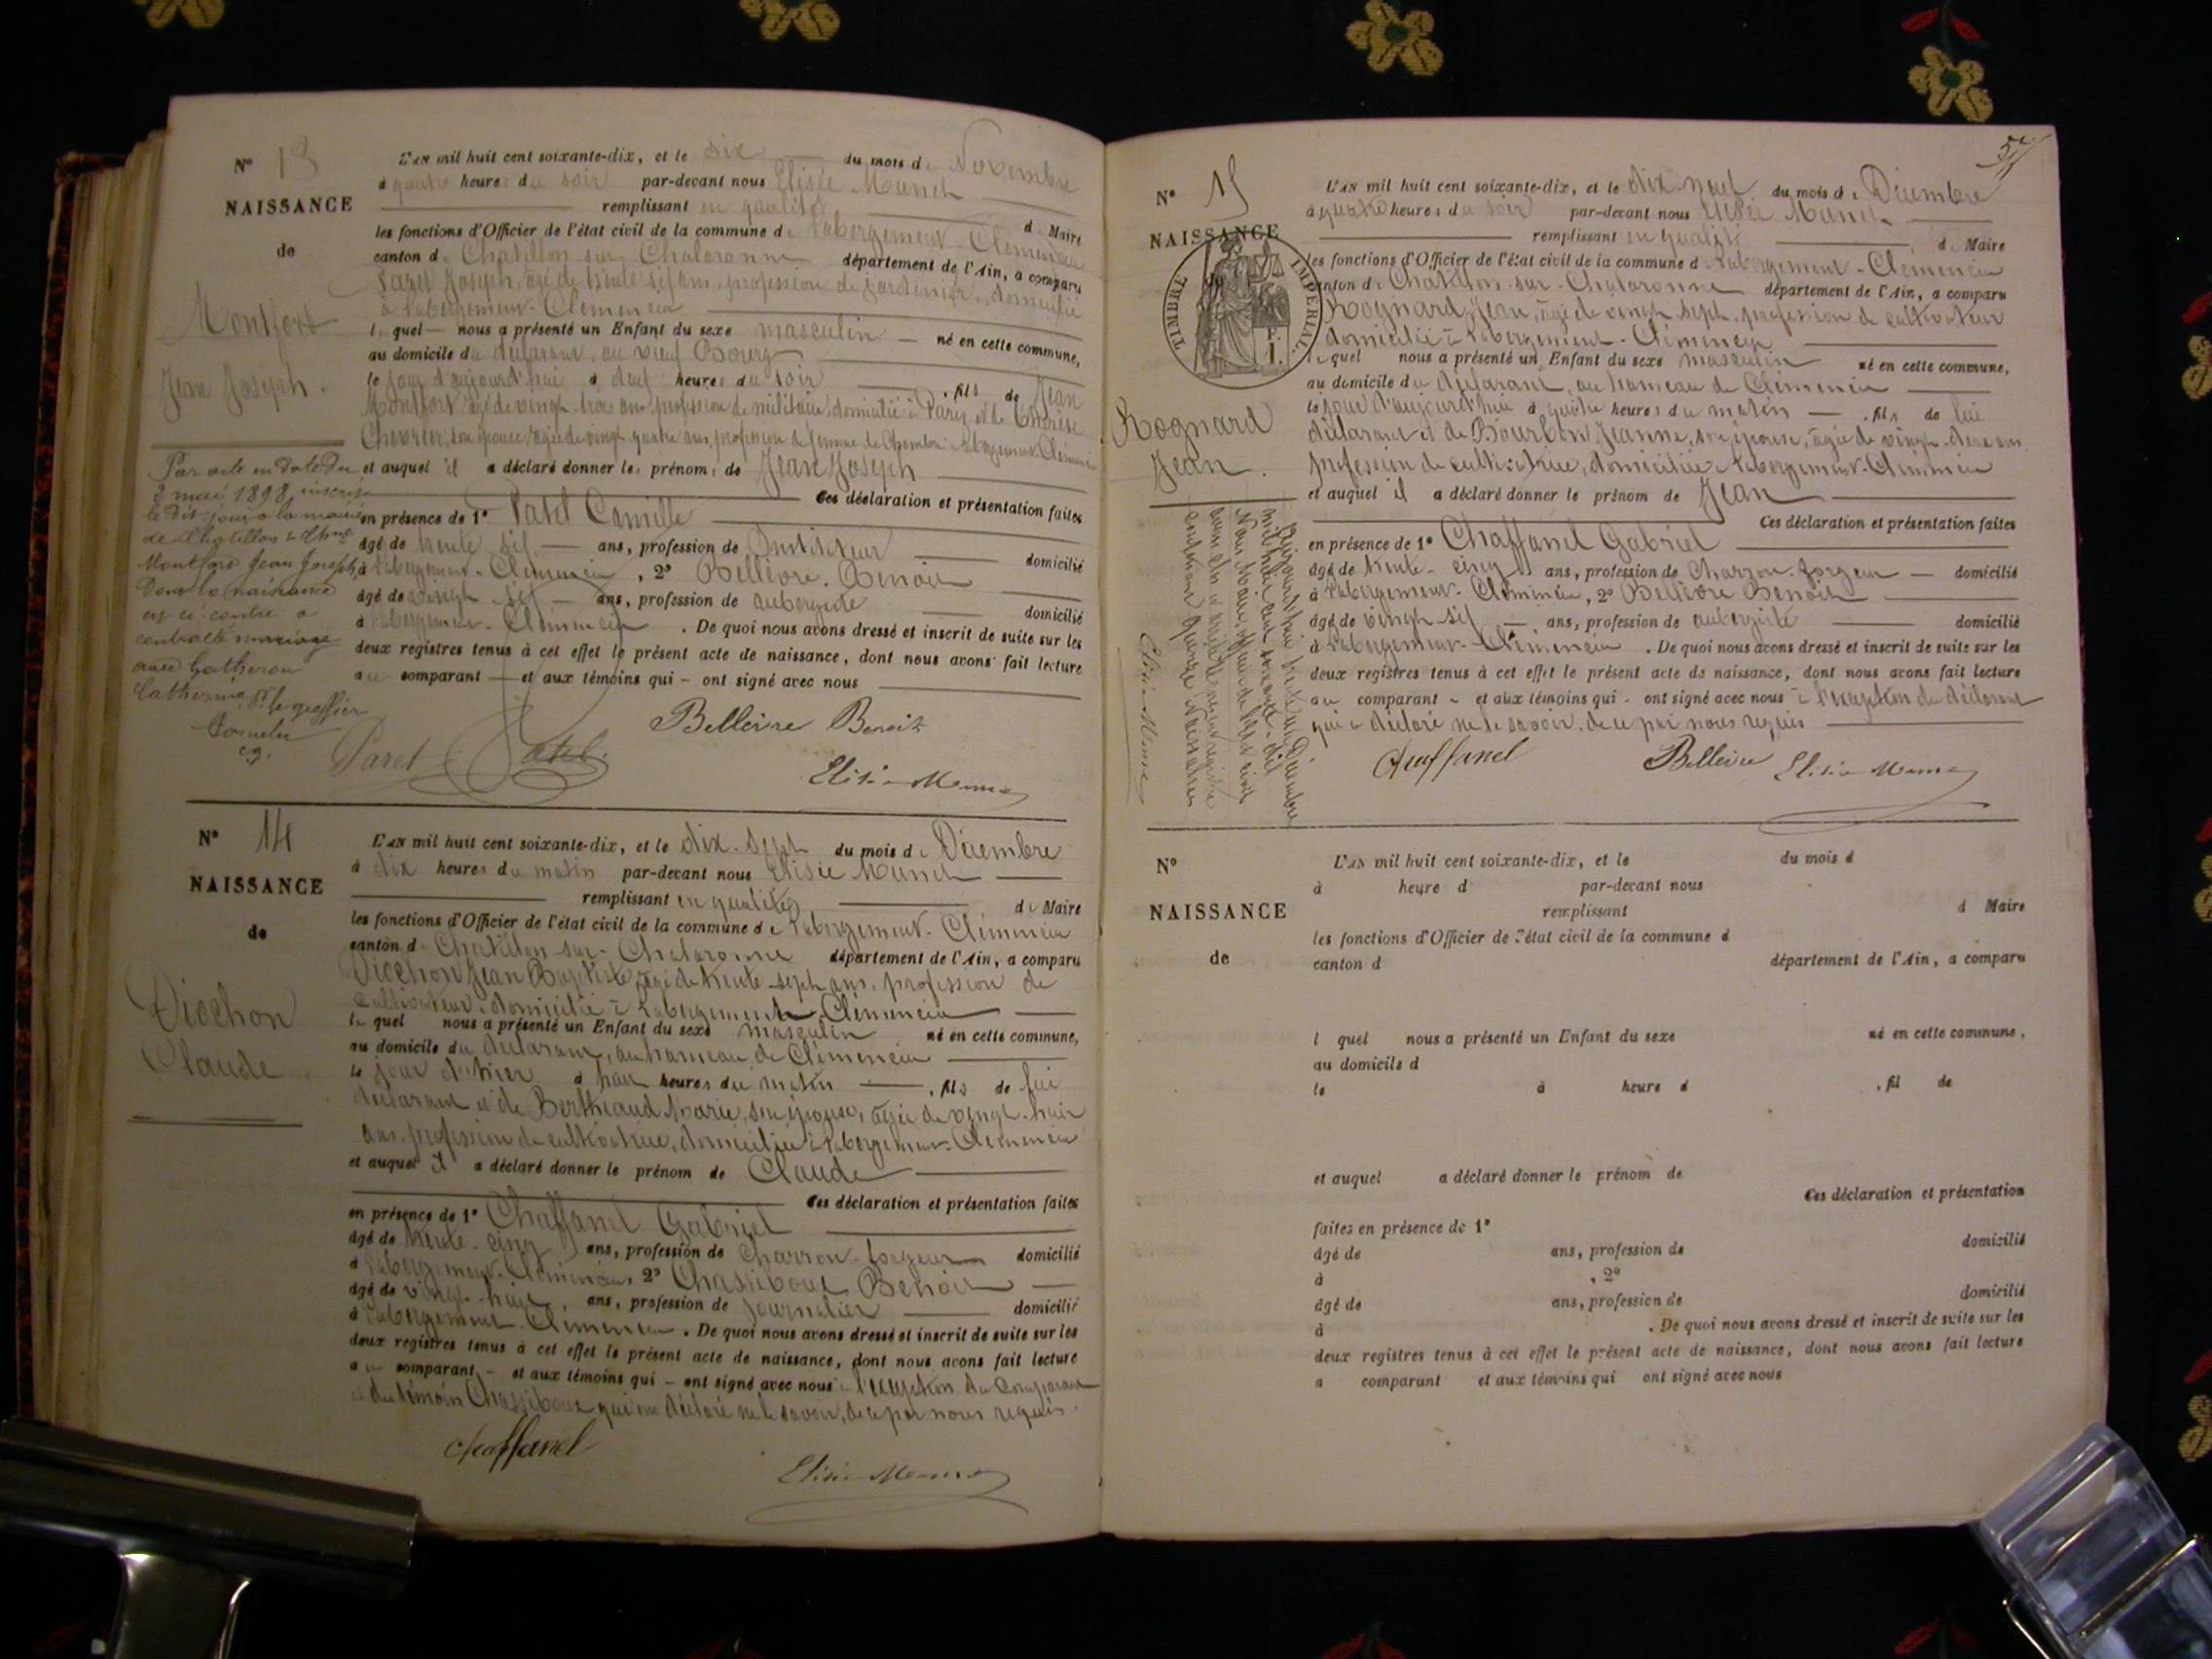 N° 13
NAISSANCE
de
Montfort
Jean Joseph.
L'AN mil huit cent soixante-dix, et le six du mois de Novembre
à quatre heures du soir par-devant nous Elisée Munet
remplissant en qualité de Maire
les fonctions d'Officier de l'état civil de la commune de l'abergement-Clémencia
canton de Chatillon sur Chalaronne département de l'Ain, a comparu
Joseph, âgé de trente six ans, profession de jardinier, domicilié
à l'abergement-Clémencia
lequel nous a présenté un Enfant du sexe masculin né en cette commune,
au domicile du déclarant, au vieux Bourg
le jour d'aujourd'hui à deux heures du soir, fils de Jean
Montfort âgé de vingt trois ans profession de militaire domicilié à Paris et de Thérèse
Chevrier, son épouse, âgée de vingt quatre ans, profession de femme de Chambre à l'abergement-Clémencia
et auquel il a déclaré donner les prénoms de Jean Joseph
Ces déclaration et présentation faites
en présence de 1° Patel Camille
âgé de trente six ans, profession de Instituteur domicilié
à l'abergement-Clémencia, 2° Bellèvre Benoit
âgé de vingt six ans, profession de aubergiste domicilié
à l'abergement-Clémencia. De quoi nous avons dressé et inscrit de suite sur les
deux registres tenus à cet effet le présent acte de naissance, dont nous avons fait lecture
au comparant et aux témoins qui ont signé avec nous
Par acte en date du
3 mai 1898 inscrit
le dit jour à la mairie
de Chatillon
Montfort Jean Joseph
Dont la naissance
est ci-contre a
contracté mariage
avec Gatheron
Catherine P. le greffier
Bellèvre Benoit
Paret Patel
Elisée Munet
N° 14
NAISSANCE
de
Diochon
Claude
L'AN mil huit cent soixante-dix, et le dix-sept du mois de Décembre
à dix heures du matin par-devant nous Elisée Munet
remplissant en qualité de Maire
les fonctions d'Officier de l'état civil de la commune de l'abergement-Clémencia
canton de Chatillon-sur-Chalaronne département de l'Ain, a comparu
Diochon Jean Baptiste, âgé de trente-sept ans, profession de
cultivateur, domicilié à l'abergement-Clémencia
lequel nous a présenté un Enfant du sexe masculin né en cette commune,
au domicile du déclarant, au hameau de Clémencia
le jour d'hier à huit heures du matin, fils de lui
déclarant et de Bertheaud Marie, son épouse, âgée de vingt-huit
ans, profession de cultivatrice, domiciliée à l'abergement-Clémencia
et auquel il a déclaré donner le prénom de Claude
Ces déclaration et présentation faites
en présence de 1° Chaffanel Gabriel
âgé de trente-cinq ans, profession de Charron-forgeur domicilié
à l'abergement-Clémencia, 2° Chassiboux Benoit
âgé de vingt-huit ans, profession de journalier domicilié
à l'abergement-Clémencia. De quoi nous avons dressé et inscrit de suite sur les
deux registres tenus à cet effet le présent acte de naissance, dont nous avons fait lecture
au comparant et aux témoins qui ont signé avec nous à l'exception du Comparant
et du témoin Chassiboux qui ont déclaré ne le savoir, de ce par nous requis.
Chaffanel
Elisée Munet
57
N° 15
NAISSANCE
de
TIMBRE IMPERIAL
Rognard
Jean.
L'AN mil huit cent soixante-dix, et le dix-neuf du mois de Décembre
à quatre heures du soir par-devant nous Elisée Munet
remplissant en qualité de Maire
les fonctions d'Officier de l'état civil de la commune de l'abergement-Clémencia
canton de Chatillon-sur-Chalaronne département de l'Ain, a comparu
Rognard Jean, âgé de vingt-sept, profession de cultivateur
domicilié à l'abergement-Clémencia
lequel nous a présenté un Enfant du sexe masculin né en cette commune,
au domicile du déclarant, au hameau de Clémencia
le jour d'aujourd'hui à quatre heures du matin, fils de lui
déclarant et de Bourbon Jeanne, son épouse, âgée de vingt-deux ans
profession de cultivatrice, domiciliée à l'abergement-Clémencia
et auquel il a déclaré donner le prénom de Jean
Ces déclaration et présentation faites
en présence de 1° Chaffanel Gabriel
âgé de trente-cinq ans, profession de Charron-forgeur domicilié
à l'abergement-Clémencia, 2° Bellèvre Benoit
âgé de vingt-six ans, profession de aubergiste domicilié
à l'abergement-Clémencia. De quoi nous avons dressé et inscrit de suite sur les
deux registres tenus à cet effet le présent acte de naissance, dont nous avons fait lecture
au comparant et aux témoins qui ont signé avec nous à l'exception du déclarant
qui a déclaré ne le savoir, de ce par nous requis
Chaffanel Bellèvre Elisée Munet
Aujourd'hui trente un Décembre
mil huit cent soixante-dix
Nous Maire, officier de l'état civil
avons clos et arrêté le présent registre
contenant quinze Naissances
Elisée Munet
N°
NAISSANCE
de
L'AN mil huit cent soixante-dix, et le du mois d
à heure d par-devant nous
remplissant d Maire
les fonctions d'Officier de l'état civil de la commune d
canton d département de l'Ain, a comparu
l quel nous a présenté un Enfant du sexe né en cette commune,
au domicile d
le à heure d , fil de
et auquel a déclaré donner le prénom de
Ces déclaration et présentation
faites en présence de 1°
âgé de ans, profession de domicilié
à , 2°
âgé de ans, profession de domicilié
à . De quoi nous avons dressé et inscrit de suite sur les
deux registres tenus à cet effet le présent acte de naissance, dont nous avons fait lecture
a comparant et aux témoins qui ont signé avec nous